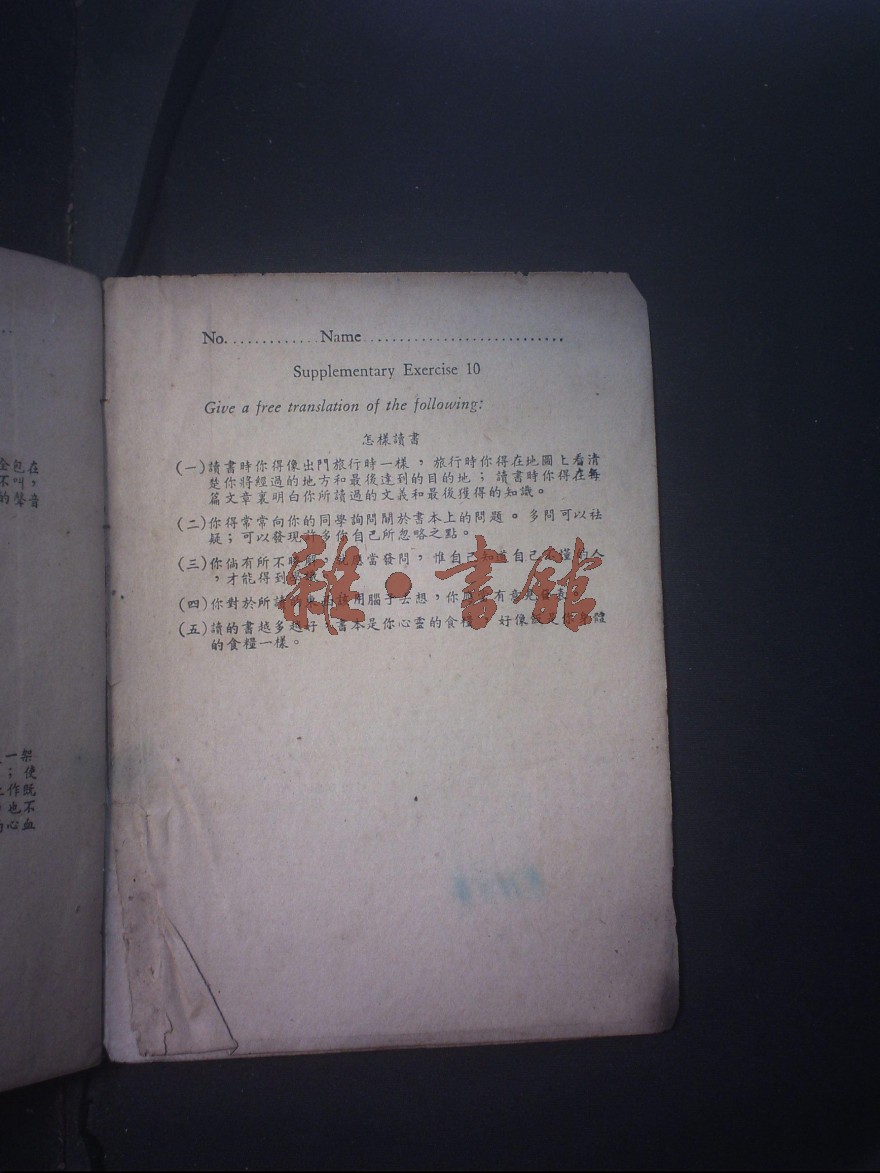 No. ............ Name ............................
Supplementary Exercise 10
Give a free translation of the following:
怎樣讀書
(一)讀書時你得像出門旅行時一樣,旅行時你得在地圖上看清
楚你將經過的地方和最後達到的目的地;讀書時你得在每
篇文章裏明白你所讀過的文義和最後獲得的知識。
(二)你得常常向你的同學詢問關於書本上的問題。多問可以祛
疑;可以發現許多你自己所忽略之點。
(三)你倘有所不 ,就應當發問,惟自己知道自己不懂的人
,才能得到
(四)你對於所讀的東西該用腦子去想,你 有意見發表
(五)讀的書越多越好,書本是你心靈的食糧,好像飯是你身體
的食糧一樣。
雜·書館
全包在
不叫,
的聲音
一架
;使
工作既
也不
的心血